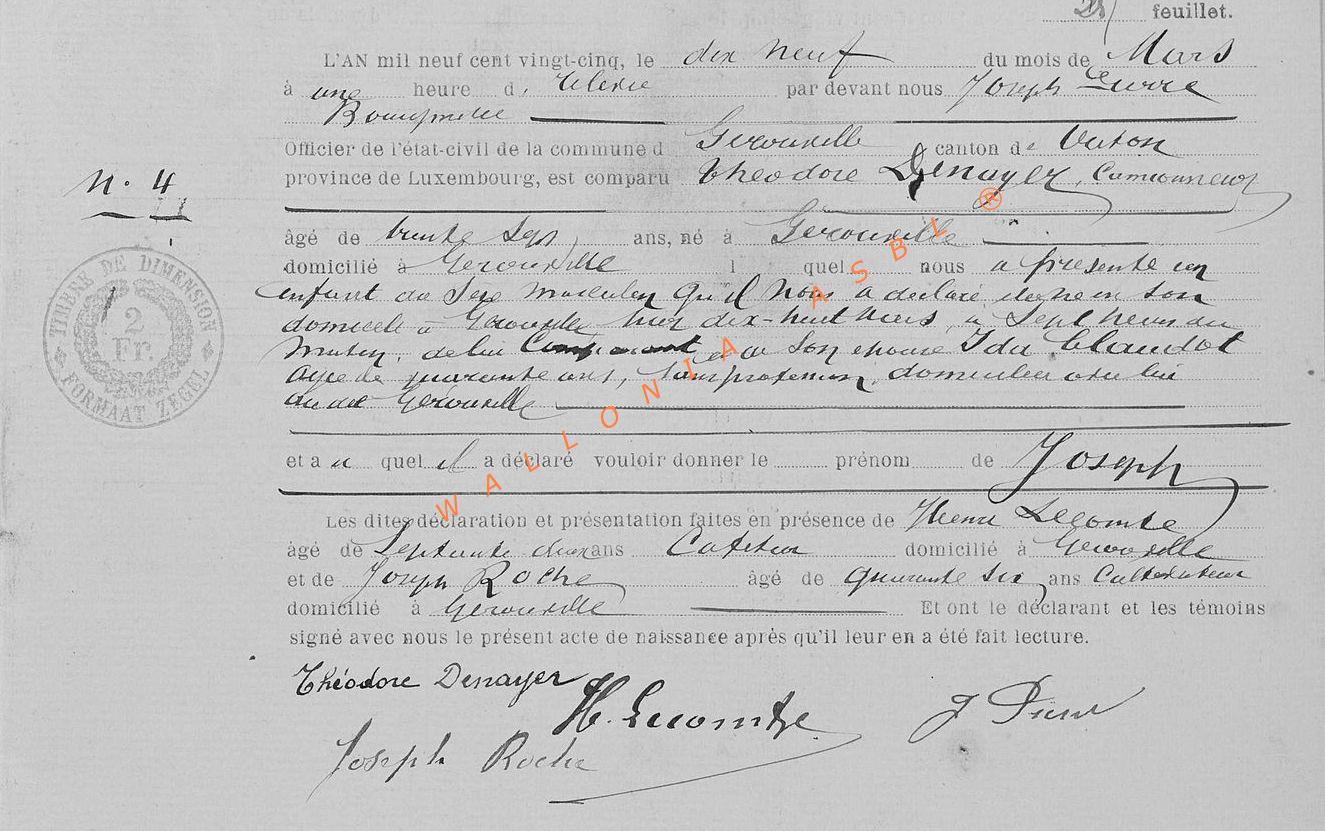 feuillet.
L'AN mil neuf cent vingt-cinq, le dix neuf du mois de Mars
à une heure d. par devant nous Joseph
Bourgmestre
Officier de l'état-civil de la commune d Gerouville canton de Virton
province de Luxembourg, est comparu Théodore Denayer, Camionneur
N. 4
âgé de trente sept ans, né à Gerouville
domicilié à Gerouville l quel nous a présenté un
enfant du sexe masculin qu'il nous a déclaré être né en son
domicile à Gerouville hier dix-huit Mars, à sept heures du
matin, de lui Comparant et de son épouse Ida Claudot
âgée de quarante ans, sans profession, domiciliée avec lui
au dit Gerouville
et a u quel il a déclaré vouloir donner le prénom de Joseph
Les dites déclaration et présentation faites en présence de Henri Lecomte
âgé de septante deux ans Cafetier domicilié à Gerouville
et de Joseph Roche âgé de quarante six ans Cultivateur
domicilié à Gerouville Et ont le déclarant et les témoins
signé avec nous le présent acte de naissance après qu'il leur en a été fait lecture.
Théodore Denayer
H. Lecomte
Joseph Roche
TIMBRE DE DIMENSION
2
Fr.
FORMAAT ZEGEL
WALLONIA ASBL ®